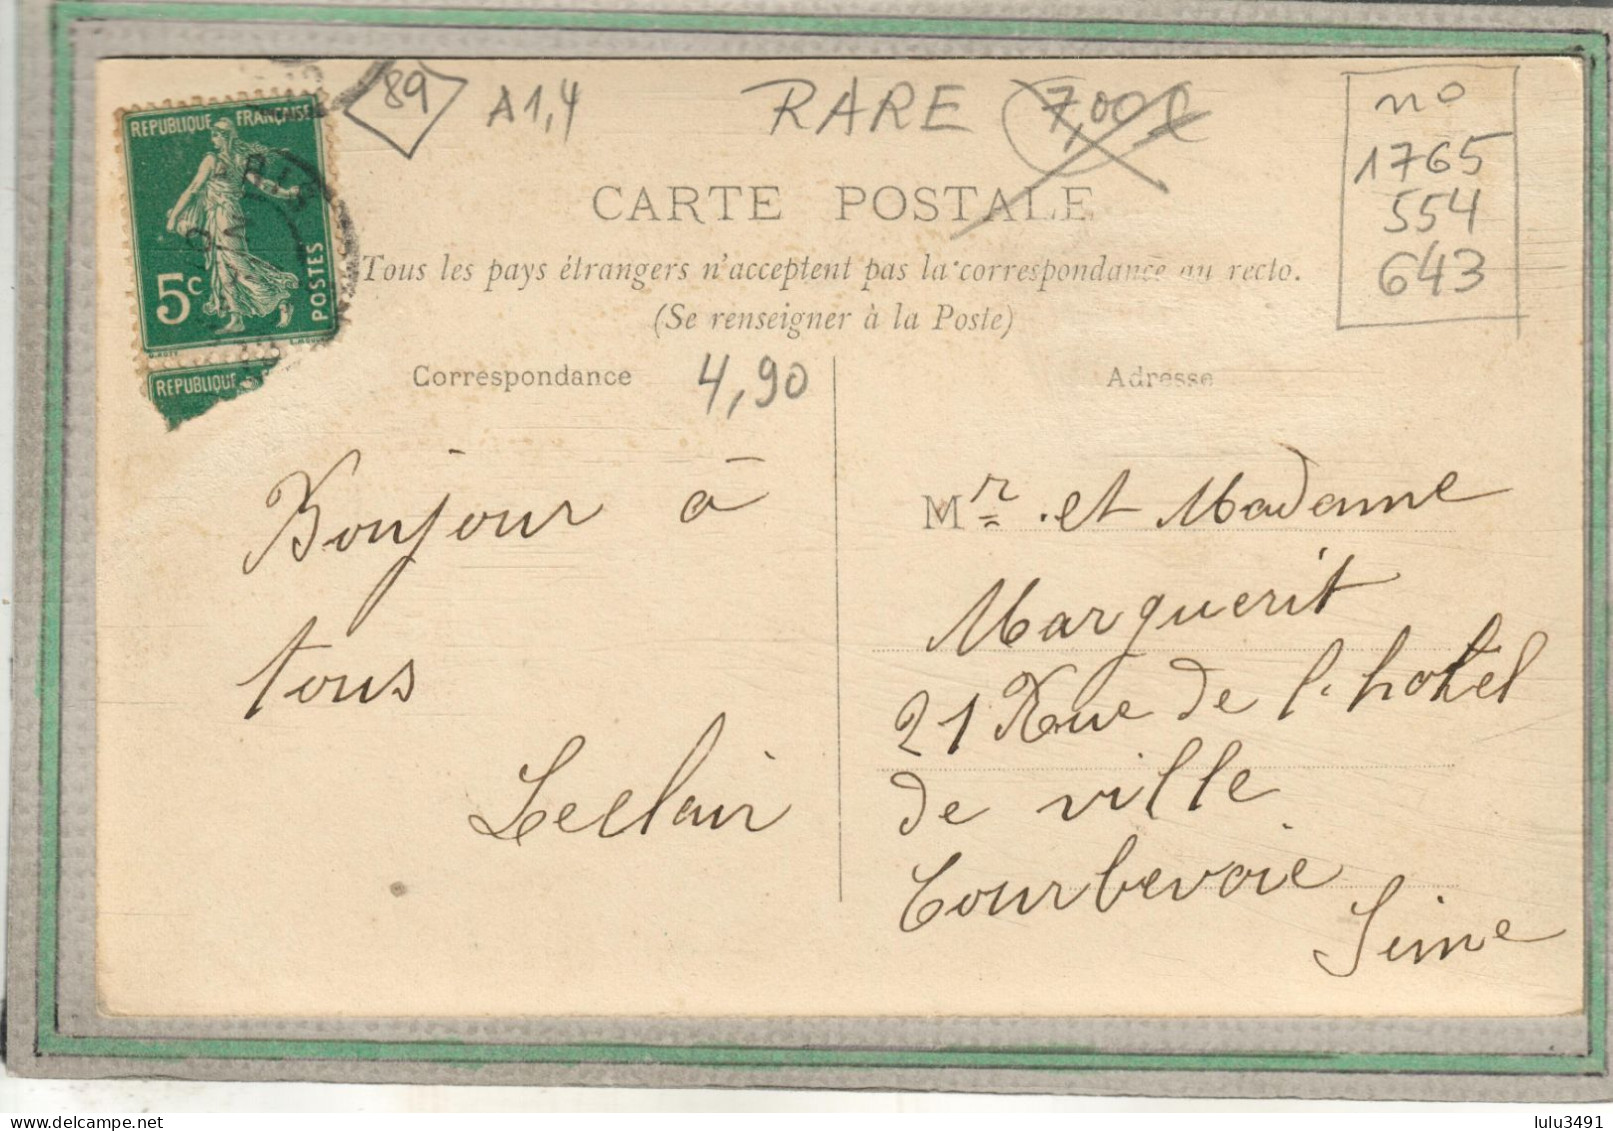 89
A1,4
RARE
7,00
no
1765
554
643
REPUBLIQUE FRANÇAISE
5c
POSTES
REPUBLIQUE
CARTE POSTALE
Tous les pays étrangers n'acceptent pas la correspondance au recto.
(Se renseigner à la Poste)
Correspondance
4,90
Adresse
Bonjour à
tous
Leclair
Mr et Madame
Marguerit
21 Rue de l'hotel
de ville
Courbevoie
Seine
lulu3491